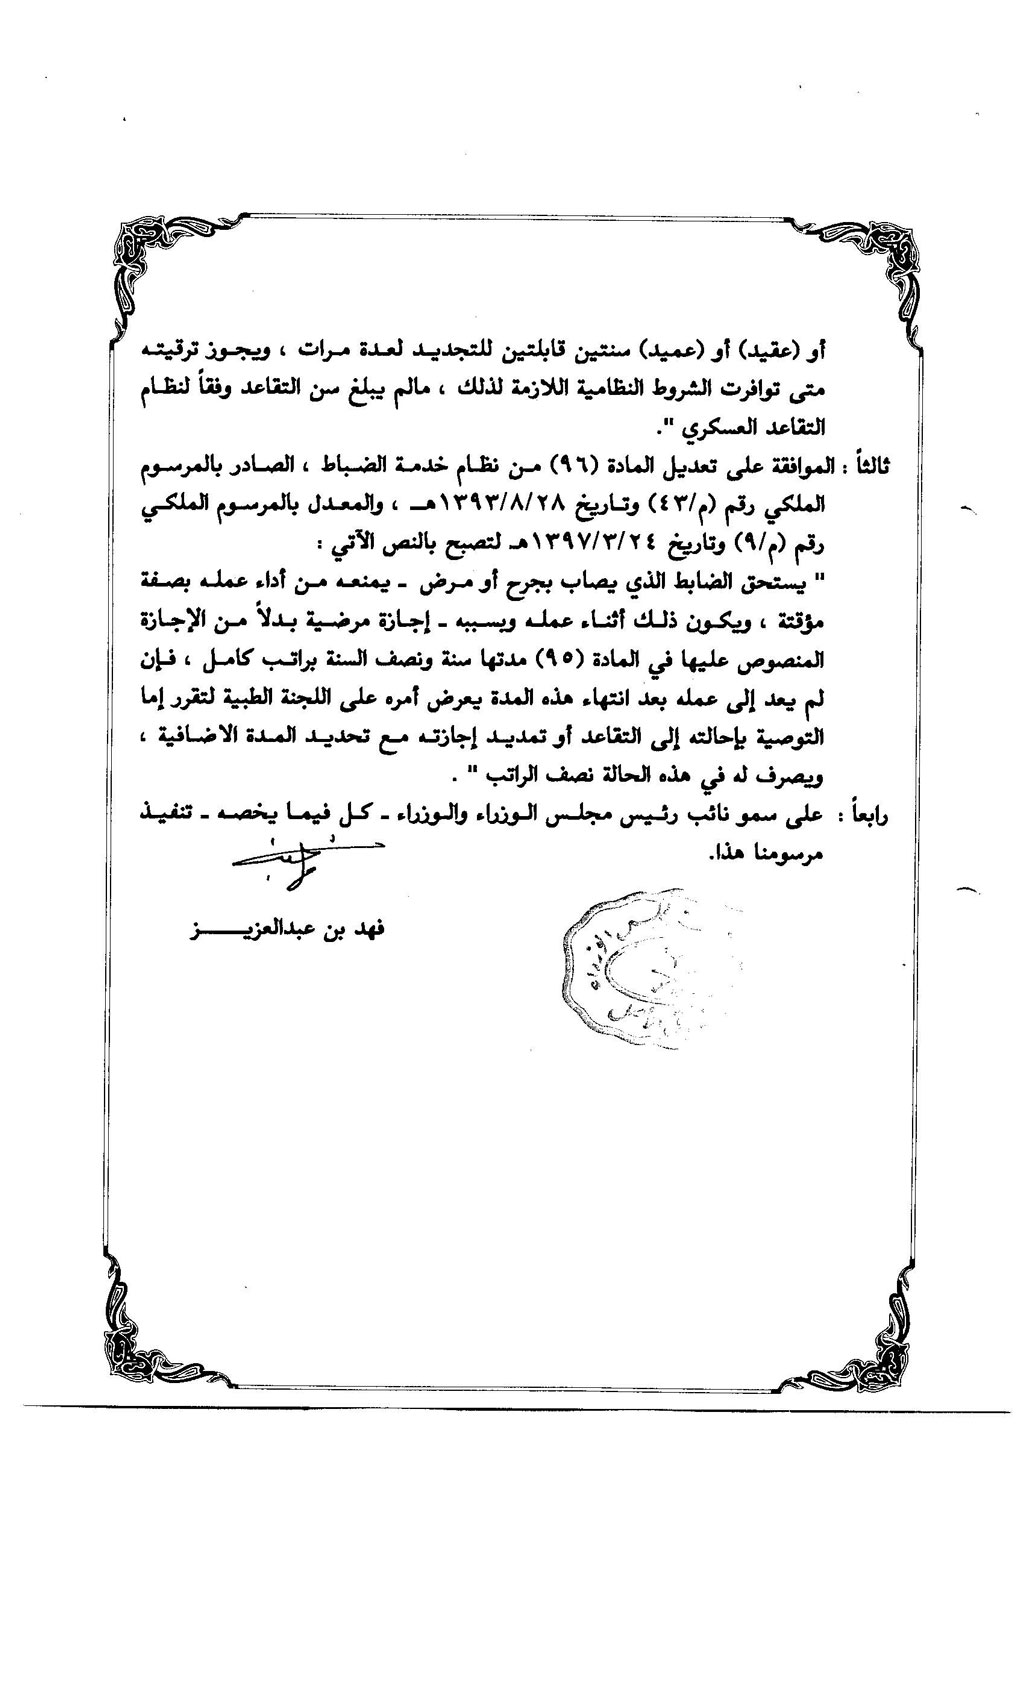 أو (عقيد) أو (عميد) سنتين قابلتين للتجديد لعدة مرات ، ويجوز ترقيته
متى توافرت الشروط النظامية اللازمة لذلك ، مالم يبلغ سن التقاعد وفقاً لنظام
التقاعد العسكري ".
ثالثاً : الموافقة على تعديل المادة (٩٦) من نظام خدمة الضباط ، الصادر بالمرسوم
الملكي رقم (م/٤٣) وتاريخ ١٣٩٣/٨/٢٨هـ ، والمعدل بالمرسوم الملكي
رقم (م/٩) وتاريخ ١٣٩٧/٣/٢٤هـ لتصبح بالنص الآتي :
" يستحق الضابط الذي يصاب بجرح أو مرض - يمنعه من أداء عمله بصفة
مؤقتة ، ويكون ذلك أثناء عمله وبسببه - إجازة مرضية بدلاً من الإجازة
المنصوص عليها في المادة (٩٥) مدتها سنة ونصف السنة براتب كامل ، فإن
لم يعد إلى عمله بعد انتهاء هذه المدة يعرض أمره على اللجنة الطبية لتقرر إما
التوصية بإحالته إلى التقاعد أو تمديد إجازته مع تحديد المدة الاضافية ،
ويصرف له في هذه الحالة نصف الراتب " .
رابعاً : على سمو نائب رئيس مجلس الوزراء والوزراء - كل فيما يخصه - تنفيذ
مرسومنا هذا.
فهد بن عبدالعزيـــــز